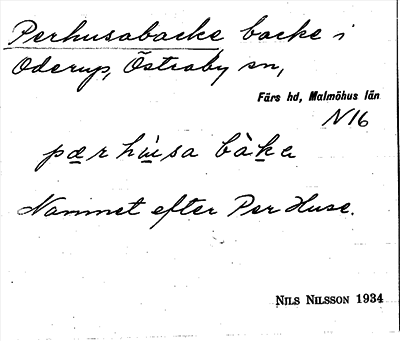 Perhusabacke backe i
Oderup, Östraby sn,
Färs hd, Malmöhus län
N16
pærhùsa bàka
Namnet efter Per Huse.
NILS NILSSON 1934